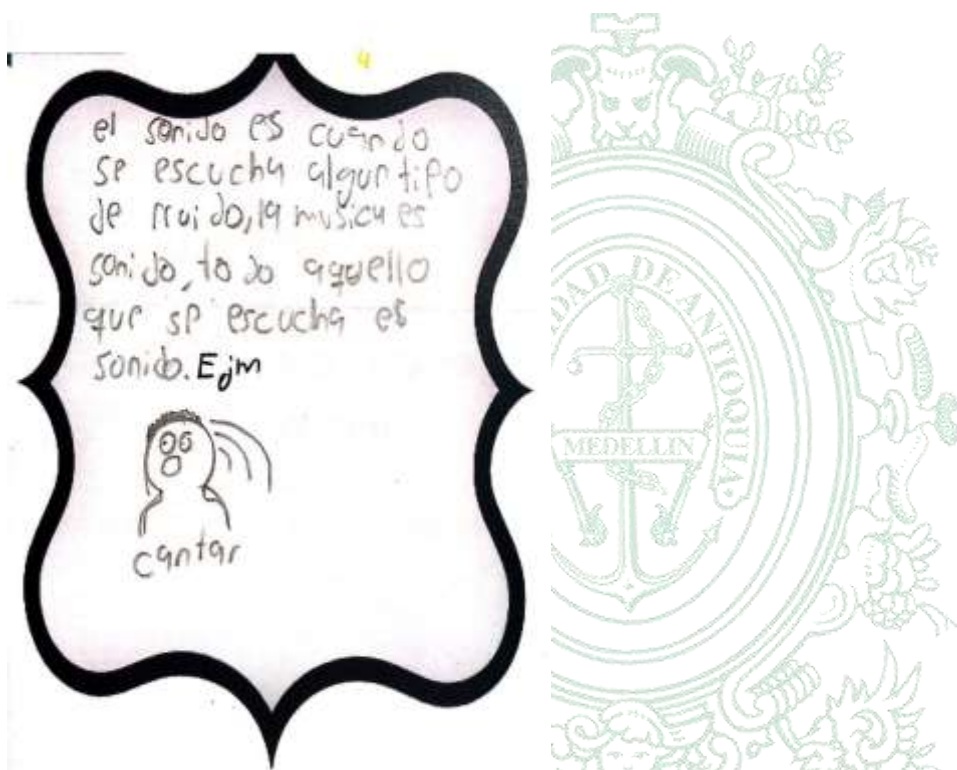 4
el sonido es cuando
se escucha algun tipo
de rruido, la musica es
sonido, todo aquello
que se escucha es
sonido. Ejm
cantar
DAD DE ANTIOQUIA
MEDELLIN